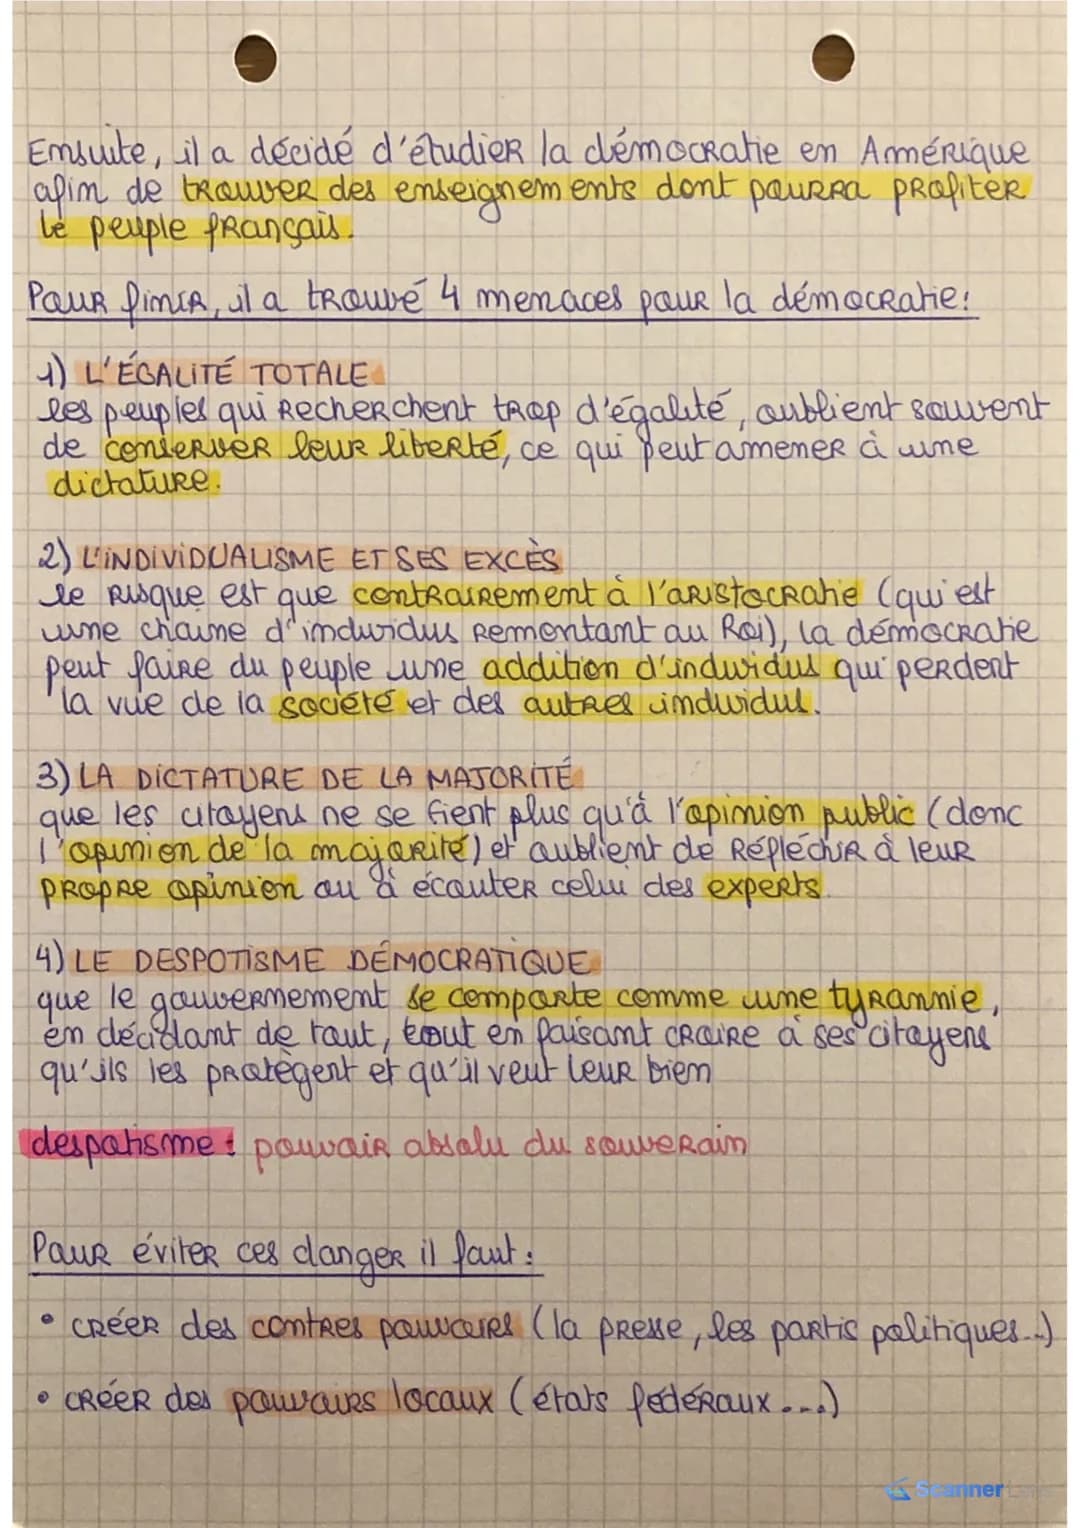 Ensuite, il a décidé d'étudier la démocratie en Amérique
afin de trouver des enseignements dont pourra profiter
le peuple français.
Pour finir, il a trouvé 4 menaces pour la démocratie:
1) L'ÉGALITÉ TOTALE
les peuples qui recherchent trop d'égalité, oublient souvent
de conserver leur liberté, ce qui peut amener à une
dictature.
2) L'INDIVIDUALISME ET SES EXCÈS
le risque est que contrairement à l'aristocratie (qui est
une chaine d'individus remontant au Roi), la démocratie
peut faire du peuple une addition d'individus qui perdent
la vue de la société et des autres individus.
3) LA DICTATURE DE LA MAJORITÉ
que les citoyens ne se fient plus qu'à l'opinion public (donc
l'opinion de la majorité) et oublient de réfléchir à leur
propre opinion ou à écouter celui des experts.
4) LE DESPOTISME DÉMOCRATIQUE
que le gouvernement se comporte comme une tyrannie,
en décidant de tout, tout en faisant croire à ses citoyens
qu'ils les protègent et qu'il veut leur bien
despotisme : pouvoir absolu du souverain
Pour éviter ces danger il faut :
• créer des contres pouvoirs (la presse, les partis politiques...)
• créer des pouvoirs locaux (états fédéraux ....)
Scanner